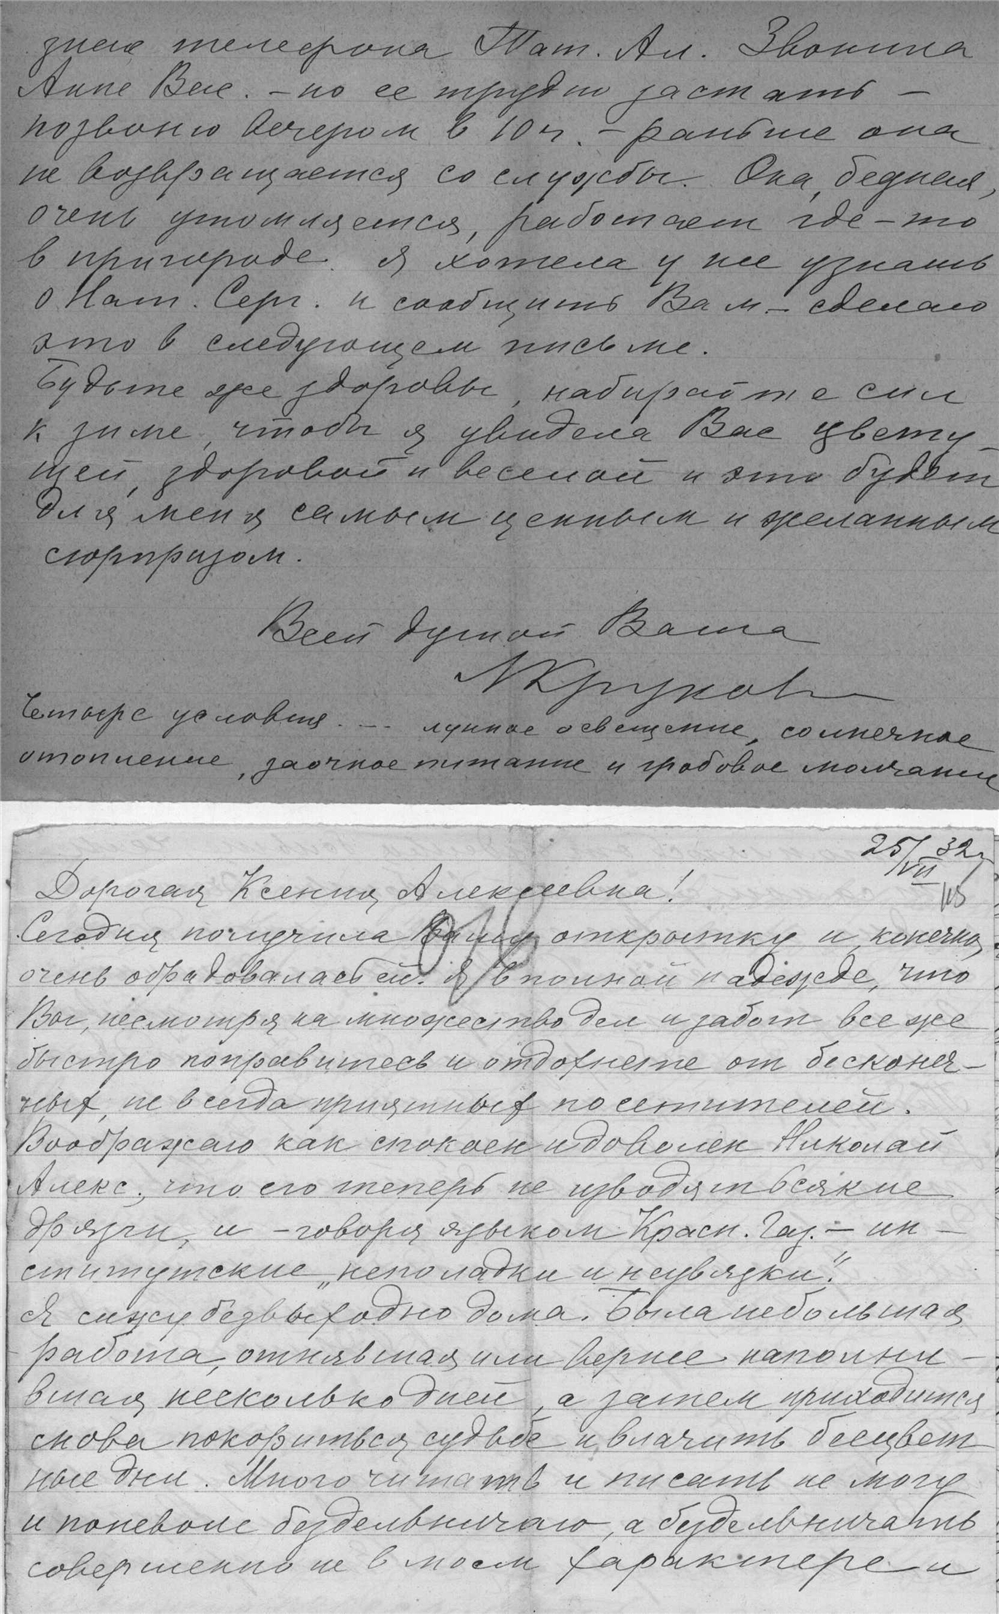 знаю телефона Тат. Ал. Звонила
Анне Вас. – но ее трудно застать –
позвоню вечером в 10 ч. – раньше она
не возвращается со службы. Она, бедная,
очень утомляется, работает где-то
в пригороде. Я хотела у нее узнать
о Нат. Серг. и сообщить Вам – сделаю
это в следующем письме.
Будьте же здоровы, набирайте сил
к зиме, чтобы я увидела Вас цвету-
щей, здоровой и веселой и это будет
для меня самым ценным и желанным
сюрпризом.
Всей душой Ваша
МКрукова
Четыре условия --- лунное освещение, солнечное
отопление, заочное питание и гробовое молчание
25/VII 32 г
Дорогая Ксения Алексеевна!
Сегодня получила Вашу открытку и, конечно,
очень обрадовалась ей. Я в полной надежде, что
Вы, несмотря на множество дел и забот все же
быстро поправитесь и отдохнете от бесконеч-
ных, не всегда приятных посетителей.
Воображаю как спокоен и доволен Николай
Алекс., что его теперь не изводят всякие
дрязги, и – говоря языком Красн. Газ. – ин-
ститутские „неполадки и неувязки".
Я сижу безвыходно дома. Была небольшая
работа, отнявшая или вернее наполни-
вшая несколько дней, а затем приходится
снова покориться судьбе и влачить бесцвет
ные дни. Много читать и писать не могу
и поневоле бездельничаю, а бездельничать
совершенно не в моем характере и